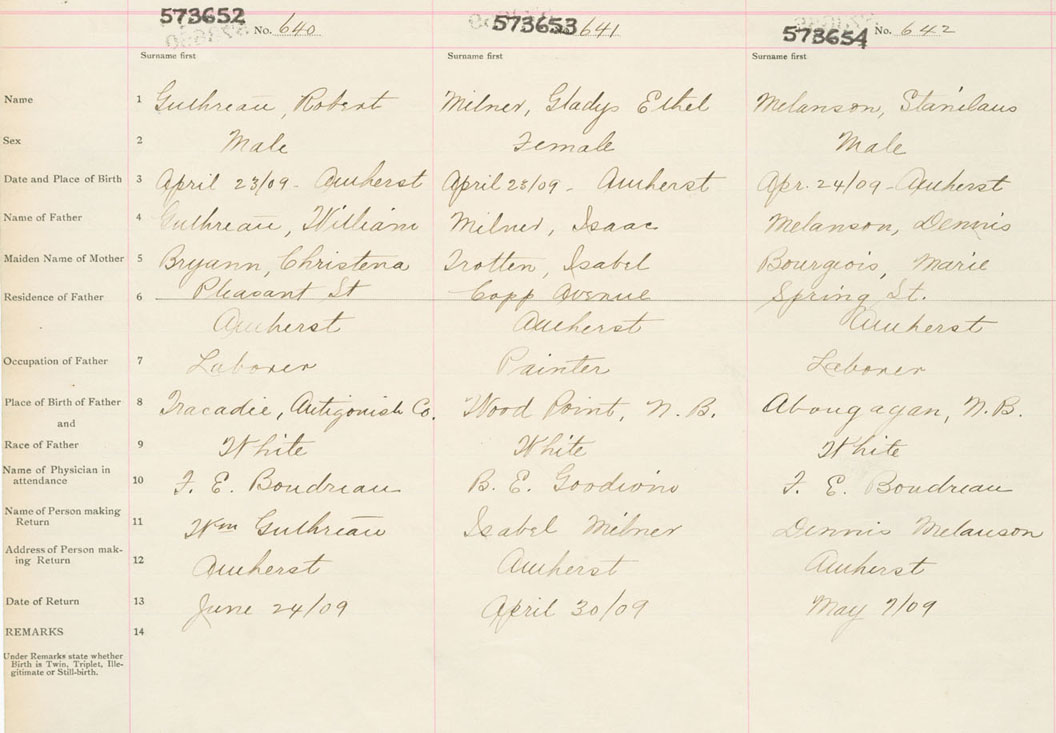 573652 No. 640 573653 641 573654 No. 642
Surname first Surname first Surname first
Name 1 Guthreau, Robert Milner, Gladys Ethel Melanson, Stanilaus
Sex 2 Male Female Male
Date and Place of Birth 3 April 23/09 - Amherst April 23/09 - Amherst Apr. 24/09 - Amherst
Name of Father 4 Guthreau, William Milner, Isaac Melanson, Dennis
Maiden Name of Mother 5 Bryann, Christena Trotten, Isabel Bourgeois, Marie
Residence of Father 6 Pleasant St Copp Avenue Spring St.
Amherst Amherst Amherst
Occupation of Father 7 Laborer Painter Laborer
Place of Birth of Father 8 Tracadie, Antigonish Co. Wood Point, N.B. Abougagan, N.B.
and
Race of Father 9 White White White
Name of Physician in
attendance 10 F. E. Boudreau B. E. Goodwin F. E. Boudreau
Name of Person making
Return 11 Wm Guthreau Isabel Milner Dennis Melanson
Address of Person mak-
ing Return 12 Amherst Amherst Amherst
Date of Return 13 June 24/09 April 30/09 May 7/09
REMARKS 14
Under Remarks state whether
Birth is Twin, Triplet, Ille-
gitimate or Still-birth.